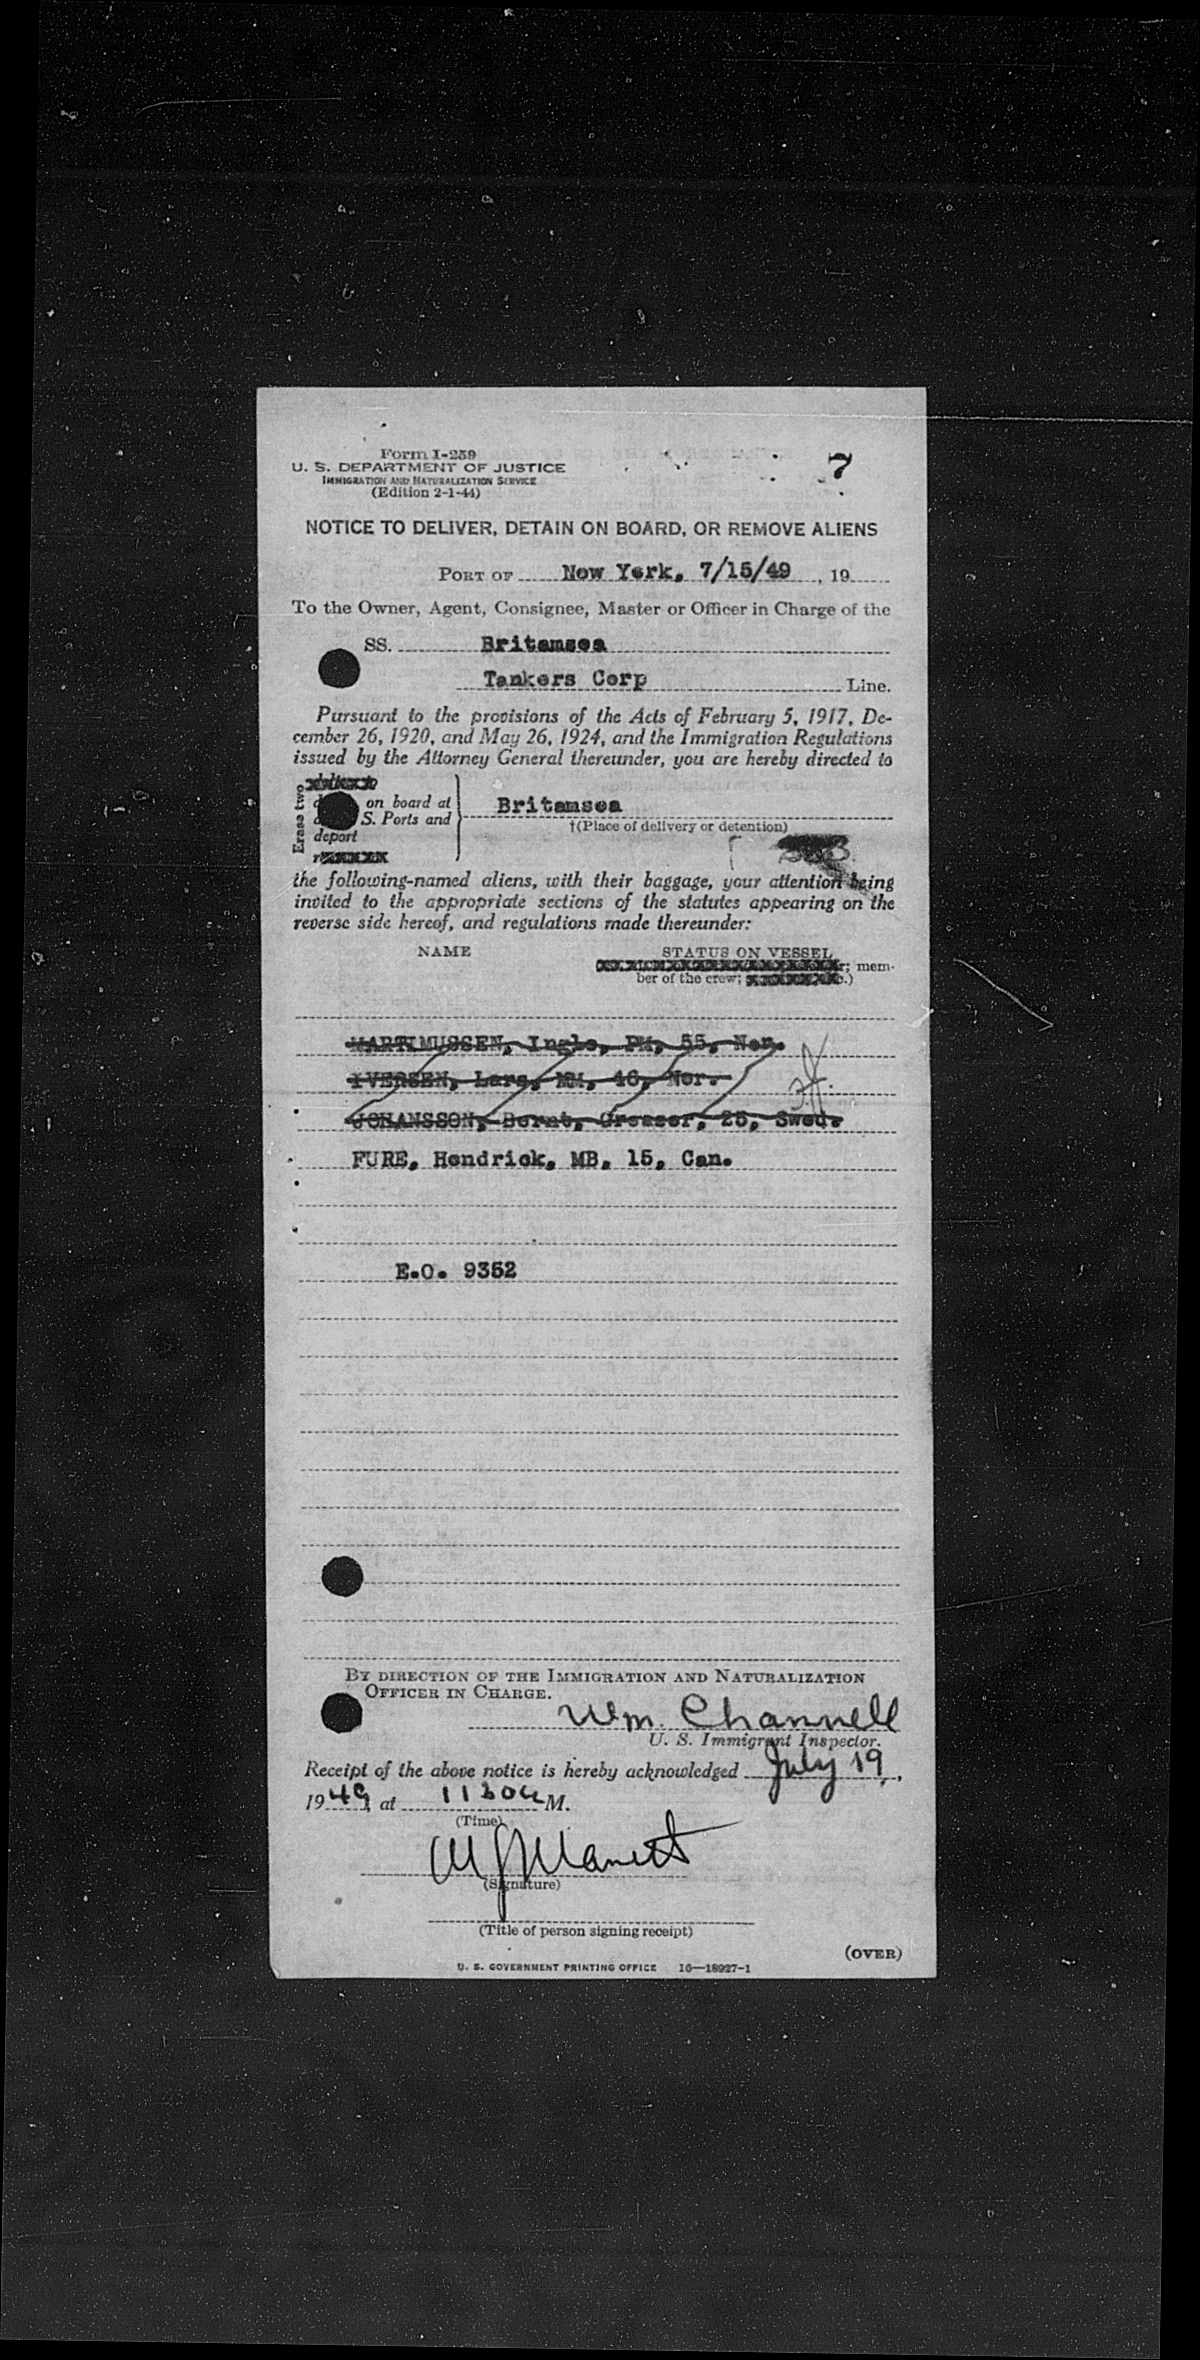 7
Form I-259
U. S. DEPARTMENT OF JUSTICE
IMMIGRATION AND NATURALIZATION SERVICE
(Edition 2-1-44)
NOTICE TO DELIVER, DETAIN ON BOARD, OR REMOVE ALIENS
PORT OF New York, 7/15/49, 19
To the Owner, Agent, Consignee, Master or Officer in Charge of the
SS. Britamsea
Tankers Corp Line.
Pursuant to the provisions of the Acts of February 5, 1917, De-
cember 26, 1920, and May 26, 1924, and the Immigration Regulations
issued by the Attorney General thereunder, you are hereby directed to
Erase two
on board at
S. Ports and
deport
Britamsea
†(Place of delivery or detention)
the following-named aliens, with their baggage, your attention being
invited to the appropriate sections of the statutes appearing on the
reverse side hereof, and regulations made thereunder:
NAME STATUS ON VESSEL
r; mem-
ber of the crew;
MARTIMUSSEN, Ingle, PM, 55, Nor.
IVERSEN, Lars, MM, 46, Nor.
JOHANSSON, Bernt, Greaser, 25, Swed.
FURE, Hendrick, MB, 15, Can.
E.O. 9352
BY DIRECTION OF THE IMMIGRATION AND NATURALIZATION
OFFICER IN CHARGE.
Wm. Channell
U. S. Immigrant Inspector.
Receipt of the above notice is hereby acknowledged July 19,
1949, at 1130a M.
(Time)
(Signature)
(Title of person signing receipt)
(OVER)
U. S. GOVERNMENT PRINTING OFFICE 16—18927-1